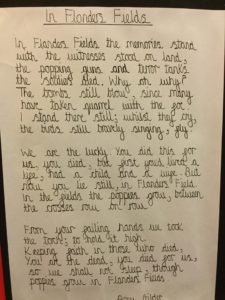 In Flanders Fields
In Flanders Fields the memories stand
with the witnesses stood on land,
the popping guns and terror tanks
the soldiers died. Why, oh why?
The bombs still blow, since many
have taken quarrel with the foe
I stand there still; whilst they cry,
the birds still bravely singing, fly.
We are the lucky. You did this for
us, you died, but first you lived a
life, had a child and a wife. But
now you lie still, in Flanders Field
in the fields the poppies grow, between
the crosses row on row.
From your failing hands we took
the torch; to hold it high.
Keeping faith in those who died,
You are the dead, you died for us,
so we shall not sleep, though
poppies grow in Flanders Fields